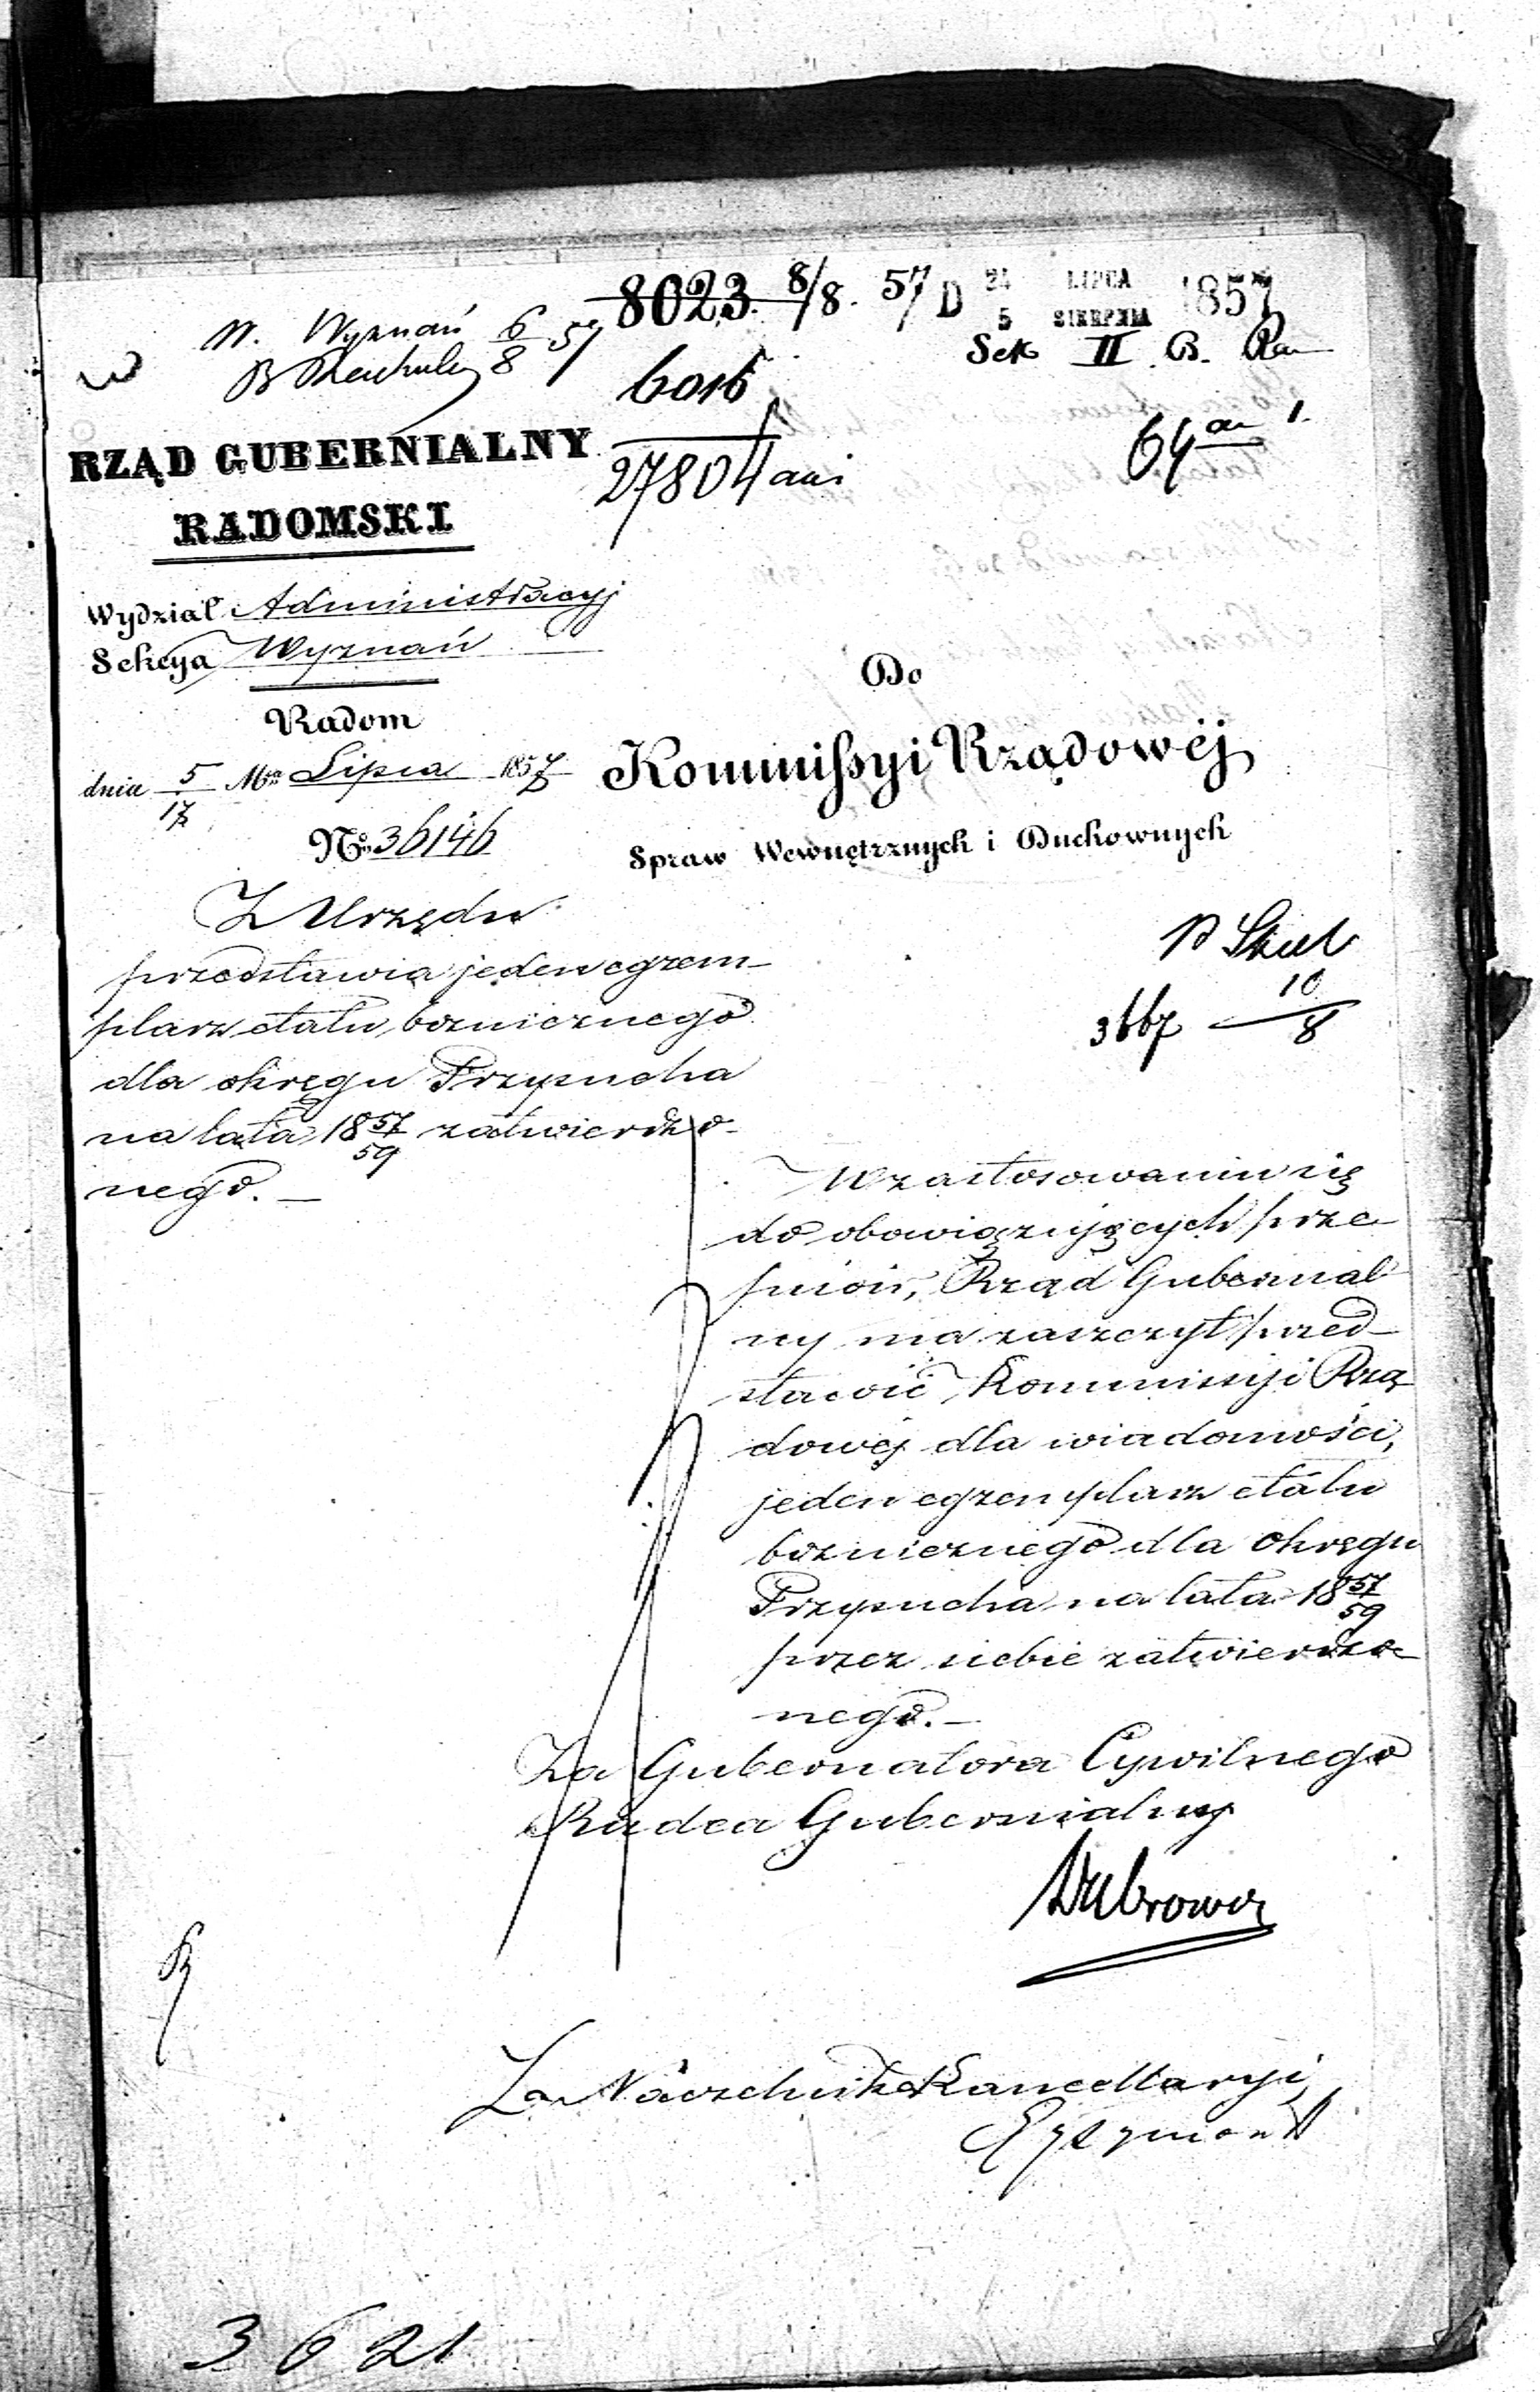 8023. 8/8. 57 D 24 LIPCA 1857
5 SIERPNIA
W. Wyznań 6/8 57
Sek II B.
6016
27804 ani
64
RZĄD GUBERNIALNY
RADOMSKI
Wydział Administracyj
Sekcya Wyznań
Radom
dnia 5/17 Mca Lipca 1857
No 36146
Do
Kommissyi Rządowéj
Spraw Wewnętrznych i Duchownych
Z Urzędu
przedstawia jeden egzem-
plarz etatu bożnicznego
dla okręgu Przysucha
na lata 18 57/59 zatwierdzo-
nego. —
10/8
W zastosowaniu się
do obowiązujących prze-
pisów, Rząd Gubernial
ny ma zaszczyt przed-
stawić Kommissyi Rzą
dowéj dla wiadomości,
jeden egzemplarz etatu
bożnicznego dla okręgu
Przysucha na lata 18 57/59
przez siebie zatwierdzo-
nego. —
Za Gubernatora Cywilnego
Radca Gubernialny
Za Naczelnika Kancellaryi
3621